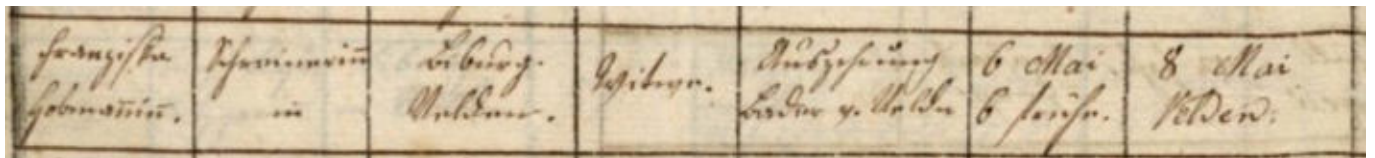 Franziska
Hobmannin.
Schreinerin
in
Biburg.
Velden.
Witwe.
Auszehrung
Bader v. Velden
6 Mai
6 frühe.
8 Mai
Velden.